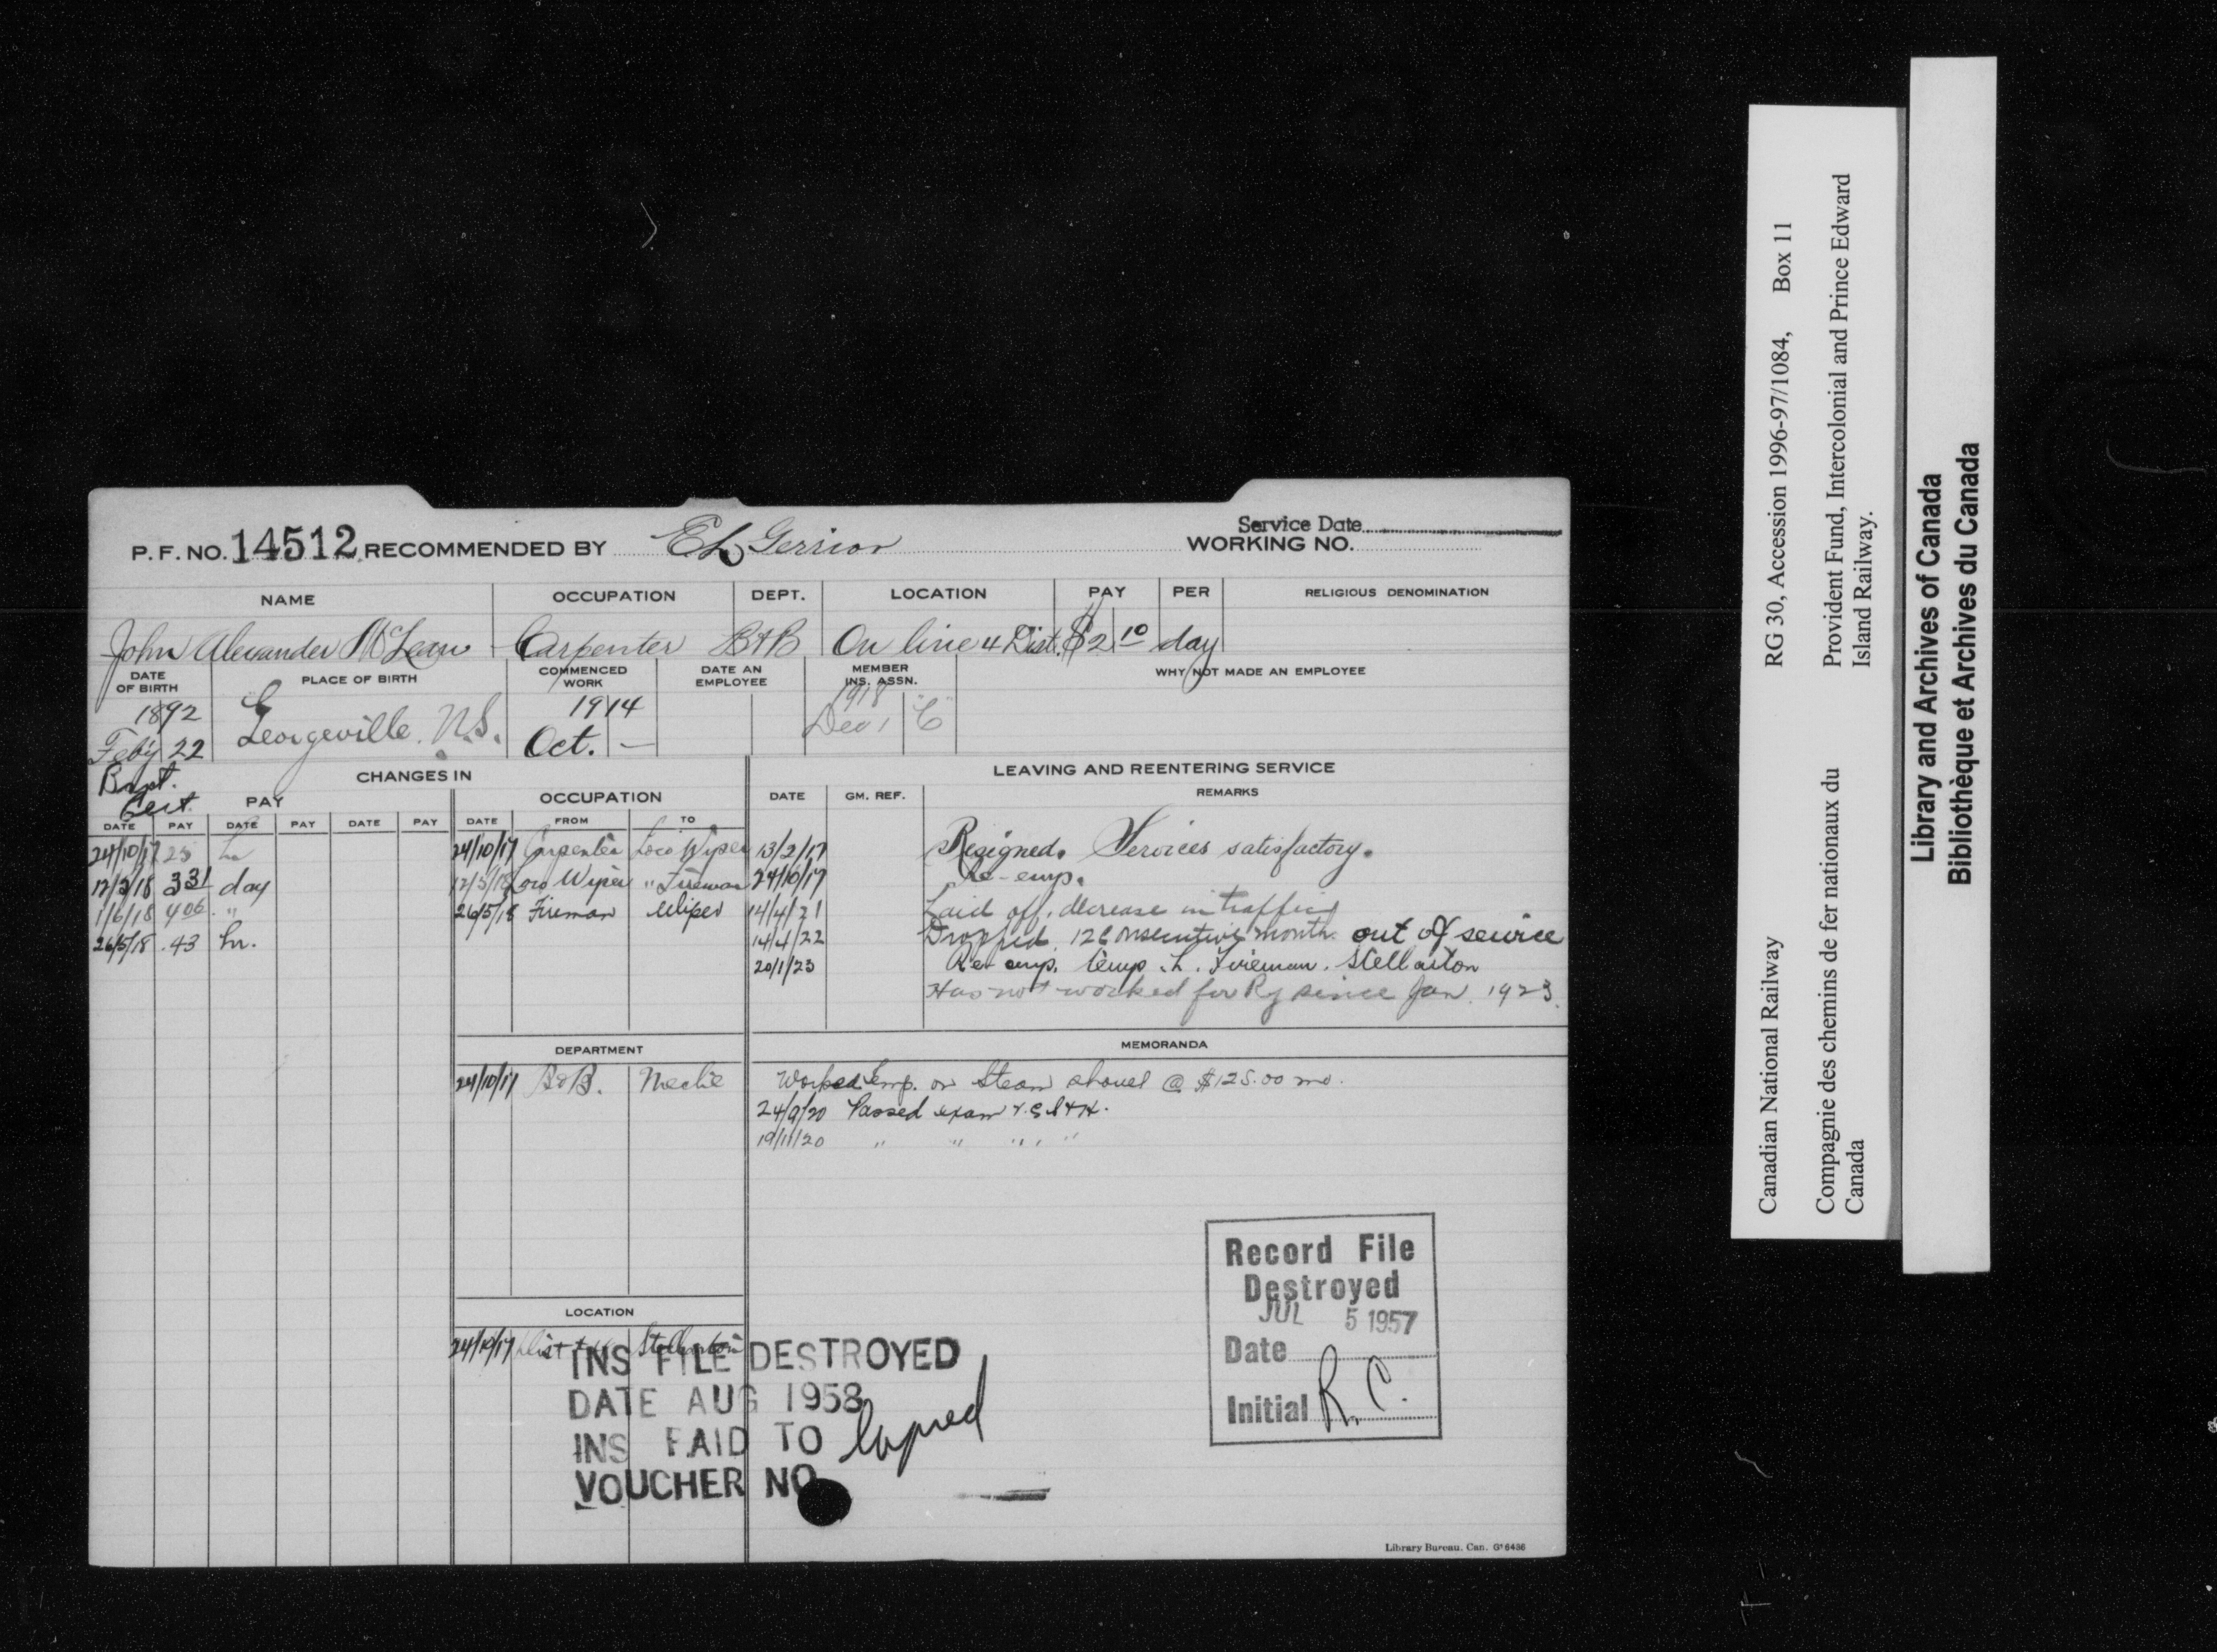 Service Date
P. F. NO. 14512 RECOMMENDED BY E L Gerrior WORKING NO.
NAME OCCUPATION DEPT. LOCATION PAY PER RELIGIOUS DENOMINATION
John Alexander McLean Carpenter B+B On line 4 Dist. $2 10 day
DATE OF BIRTH PLACE OF BIRTH COMMENCED WORK DATE AN EMPLOYEE MEMBER INS. ASSN. WHY NOT MADE AN EMPLOYEE
1892 1914 1918
Feb'y 22 Georgeville N.S. Oct. — Dec 1 "C"
Bapt. Cert.
CHANGES IN LEAVING AND REENTERING SERVICE
PAY OCCUPATION DATE GM. REF. REMARKS
DATE PAY DATE PAY DATE PAY DATE FROM TO
24/10/17 25 hr 24/10/17 Carpenter Loco Wiper 13/2/17 Resigned. Services satisfactory.
12/3/18 331 day 12/3/18 Loco Wiper " Fireman 24/10/17 Re-emp.
1/6/18 406 " 26/5/18 Fireman Wiper 14/4/21 Laid off, decrease in traffic
26/5/18 .43 hr. 14/4/22 Dropped, 12 consecutive month out of service
20/1/23 Re-emp. temp. L. Fireman. Stellarton
Has not worked for Ry since Jan. 1923.
DEPARTMENT MEMORANDA
24/10/17 B+B. Mechl Worked temp. on Steam shovel @ $125.00 mo.
24/9/20 Passed exam
19/11/20 " " " "
LOCATION
24/10/17 Dist Stellarton
INS FILE DESTROYED
DATE AUG 1958
INS PAID TO Lapsed
VOUCHER NO
Record File
Destroyed
JUL 5 1957
Date
Initial R. C.
Library Bureau. Can. G 6436
Canadian National Railway RG 30, Accession 1996-97/1084, Box 11
Compagnie des chemins de fer nationaux du Canada Provident Fund, Intercolonial and Prince Edward Island Railway.
Library and Archives of Canada
Bibliothèque et Archives du Canada